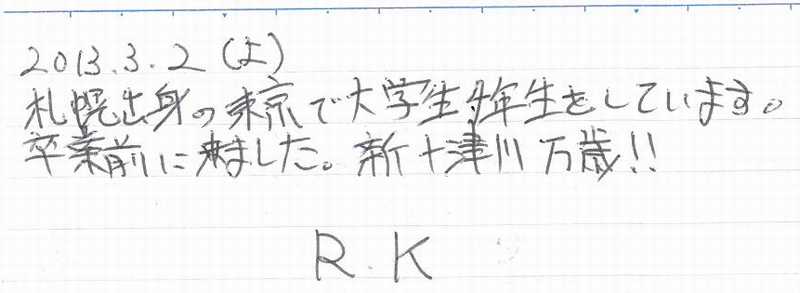 2013.3.2 (土)
札幌出身の東京で大学生4年生をしています。
卒業前に来ました。新十津川万歳!!
R.K